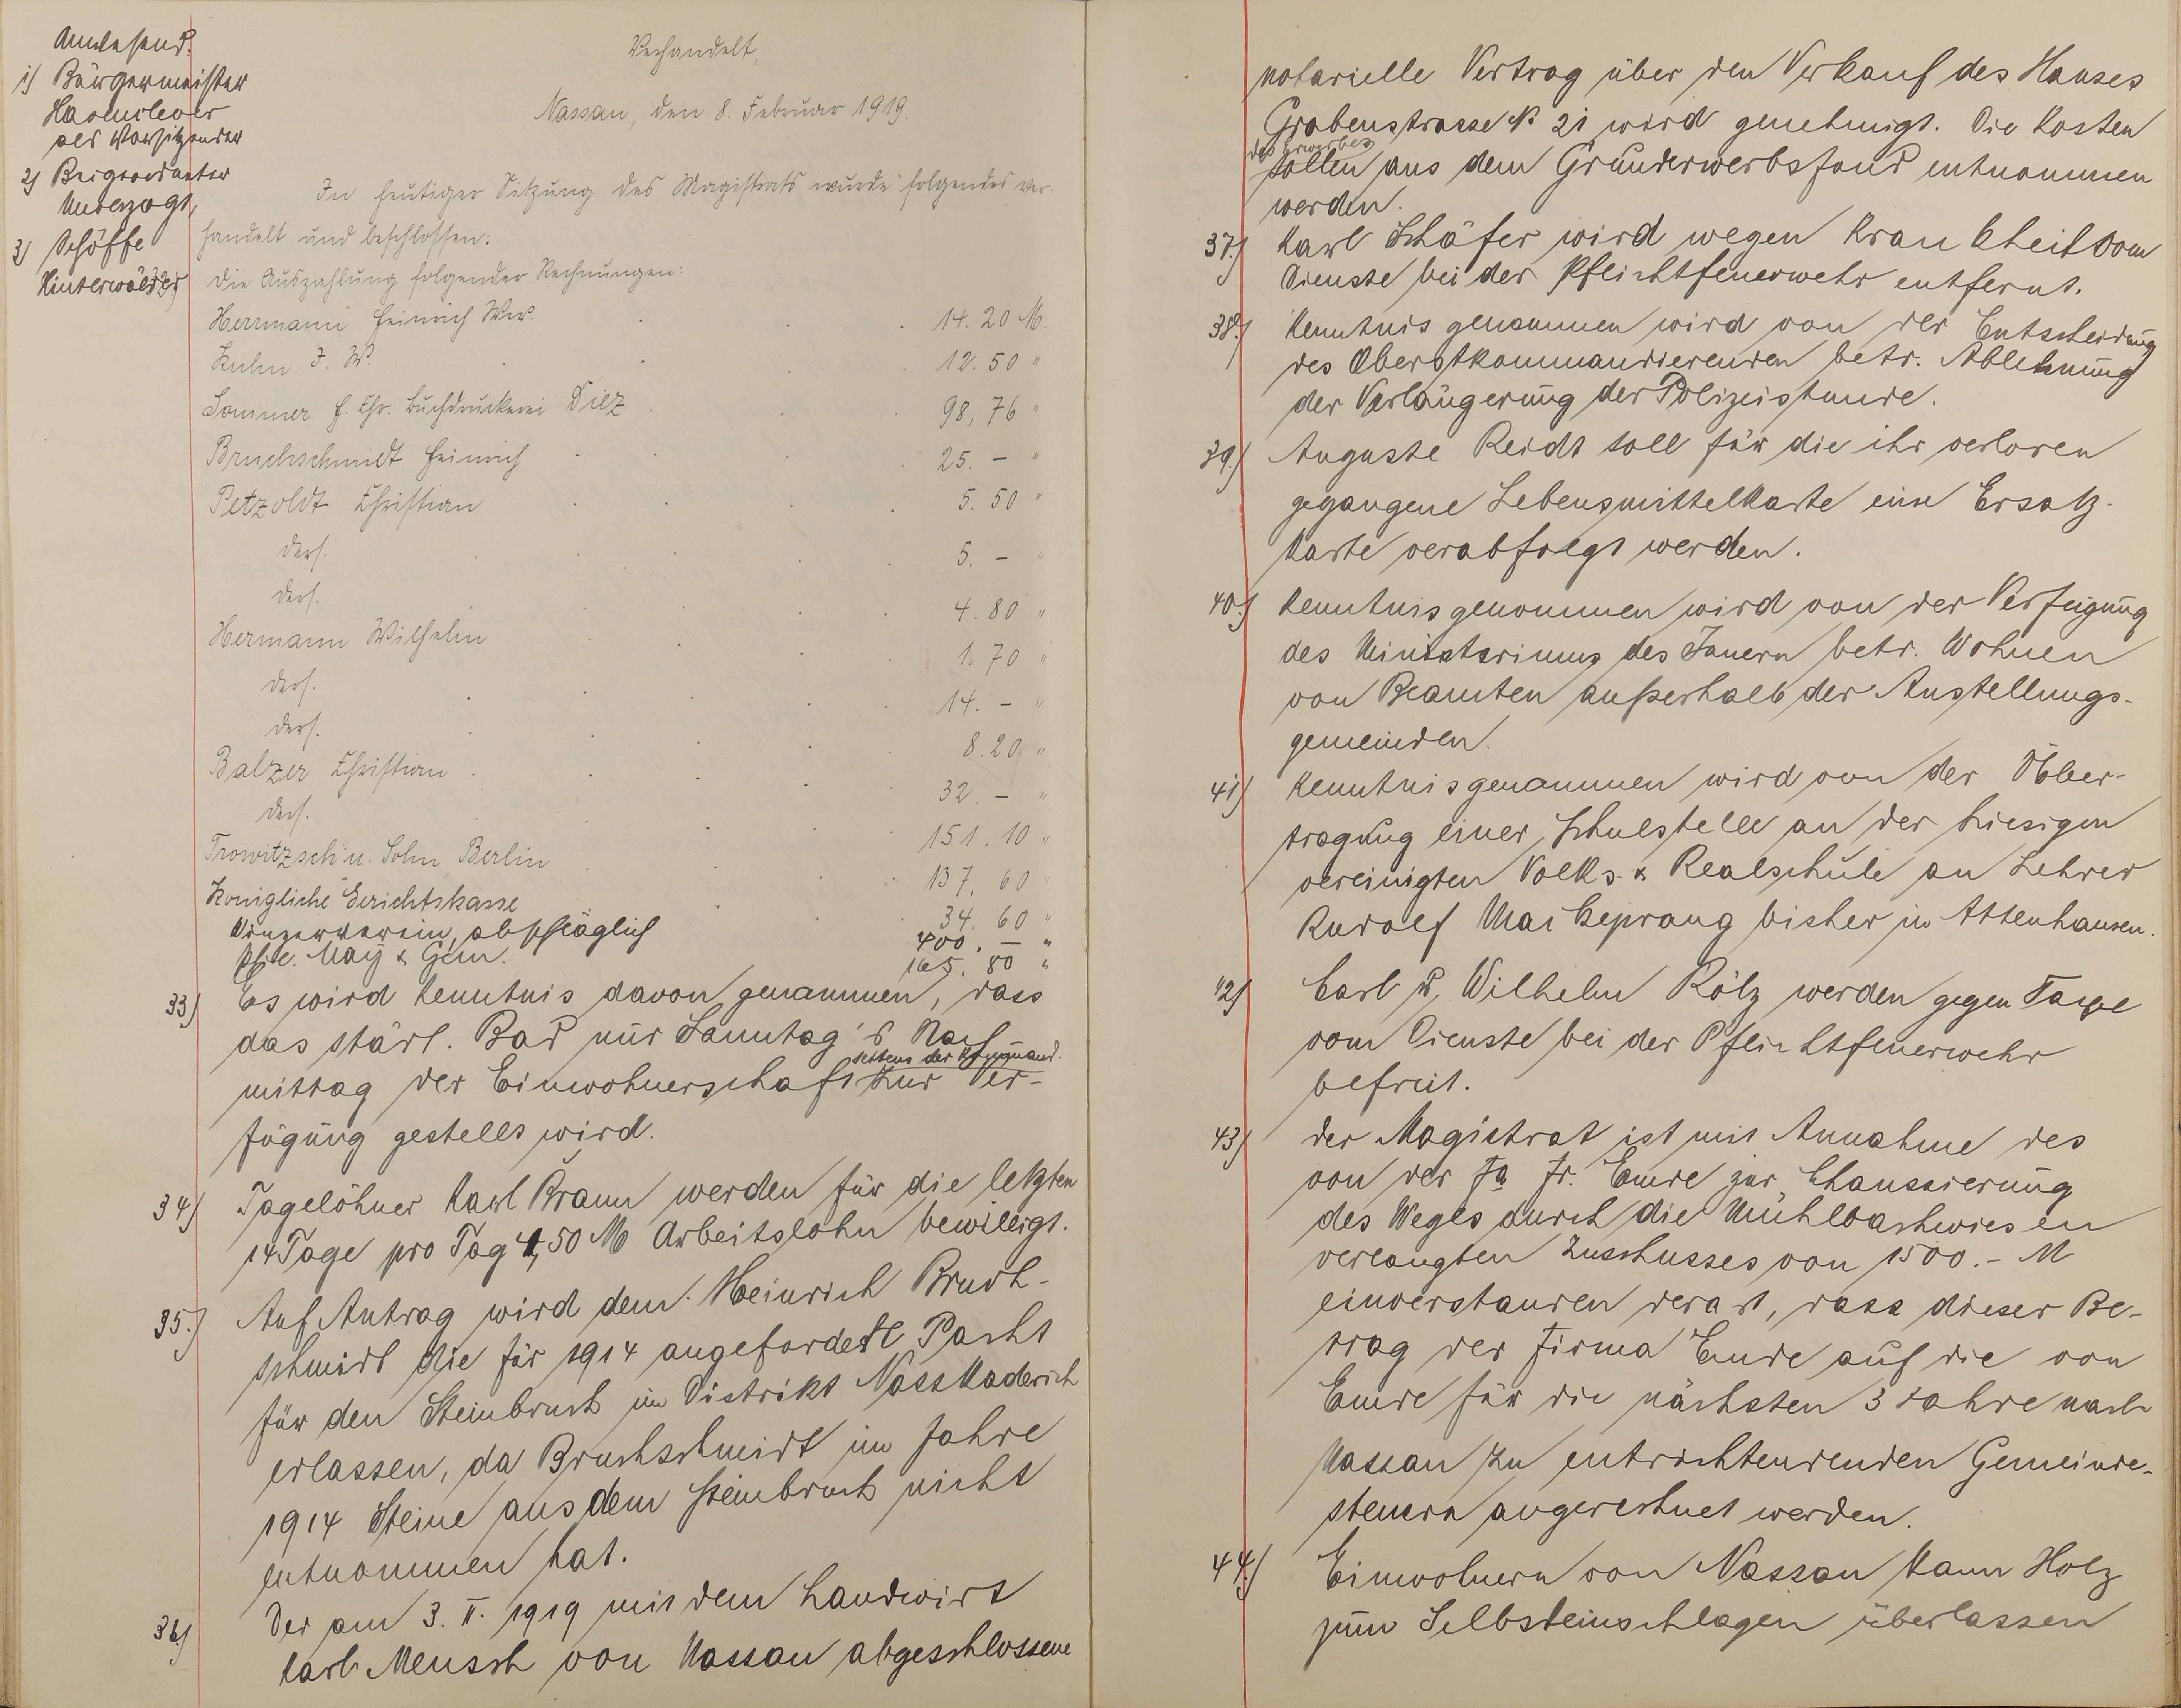 Anwesend:
1) Bürgermeister
Hasenclever
als Vorsitzender
2) Beigeordneter
Unverzagt,
3) Schöffe
Hinterwälder
Verhandelt,
Nassau, den 8. Februar 1919.
In heutiger Sitzung des Magistrats wurde folgendes ver-
handelt und beschlossen:
Die Auszahlung folgender Rechnungen:
Herrmann Heinrich Ww. 14. 20 M.
Kuhn J. W. 12. 50 "
Sommer H. Chr. Buchdruckerei Diez 98, 76 "
Bruchschmidt Heinrich 25. — "
Petzoldt Christian 5. 50 "
ders. 5. — "
ders. 4. 80 "
Hermann Wilhelm 1. 70 "
ders. 14. — "
ders. 8. 20 "
Balzer Christian 32. — "
ders. 151. 10 "
Trowitzsch u. Sohn, Berlin 137. 60 "
Königliche Gerichtskasse 34. 60 "
Winzerverein, abschläglich 400. — "
May & Gem. 165. 80 "
33) Es wird Kenntnis davon genommen, dass
das städt. Bad nur Sonntag's Nach
mittag der Einwohnerschaft seitens der zur Ver-
fügung gestellt wird.
34) Tagelöhner Karl Braun werden für die letzten
14 Tage pro Tag 4,50 M Arbeitslohn bewilligt.
35.) Auf Antrag wird dem Heinrich Bruch-
schmidt die für 1914 angeforderte Pacht
für den Steinbruch im Distrikt Nasskaderich
erlassen, da Bruchschmidt im Jahre
1914 Steine aus dem Steinbruch nicht
entnommen hat.
36) Der am 3. II. 1919 mit dem Landwirt
Karl Mensch von Nassau abgeschlossene
notarielle Vertrag über den Verkauf des Hauses
Grabenstrasse No 21 wird genehmigt. Die Kosten
des Erwerbes
sollen aus dem Grunderwerbsfond entnommen
werden.
37.) Karl Schäfer wird wegen Krankheit vom
Dienste bei der Pflichtfeuerwehr entfernt.
38.) Kenntnis genommen wird von der Entscheidung
des Oberstkommandierenden betr. Ablehnung
der Verlängerung der Polizeistunde.
39.) Auguste Reidt soll für die ihr verloren
gegangene Lebensmittelkarte eine Ersatz-
karte verabfolgt werden.
40.) Kenntnis genommen wird von der Verfügung
des Ministeriums des Innern betr. Wohnen
von Beamten außerhalb der Anstellungs-
gemeinden.
41) Kenntnis genommen wird von der Über-
tragung einer Schulstelle an der hiesigen
vereinigten Volks- & Realschule an Lehrer
Rudolf Mackeprang bisher in Attenhausen.
42) Carl u. Wilhelm Rölz werden gegen Taxe
vom Dienste bei der Pflichtfeuerwehr
befreit.
43) der Magistrat ist mit Annahme des
von der Fa Fr. Emde zur Chaussierung
des Weges durch die Mühlbachwiesen
verlangten Zuschusses von 1500.- M
einverstanden derart, dass dieser Be-
trag der Firma Emde auf die von
Emde für die nächsten 3 Jahre nach
Nassau zu entrichtendenden Gemeinde-
steuern angerechnet werden.
44.) Einwohnern von Nassau kann Holz
zum Selbsteinschlagen überlassen